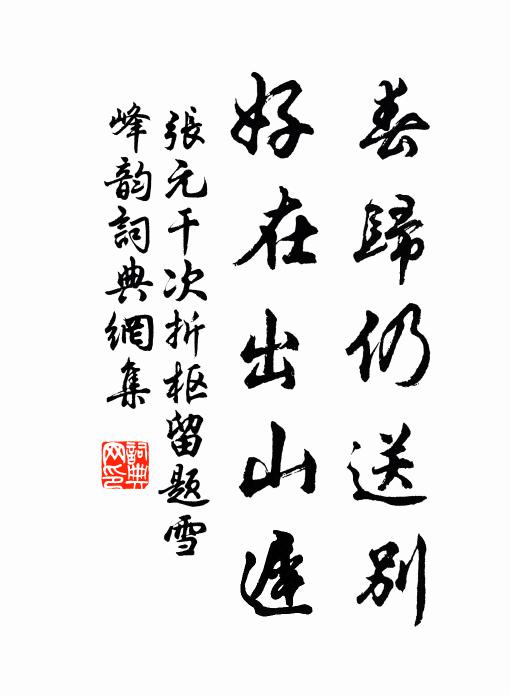 春歸仍送别
好在出山遲
張元干次折枢留題雪
峰韵詞典網集
詞典
网印